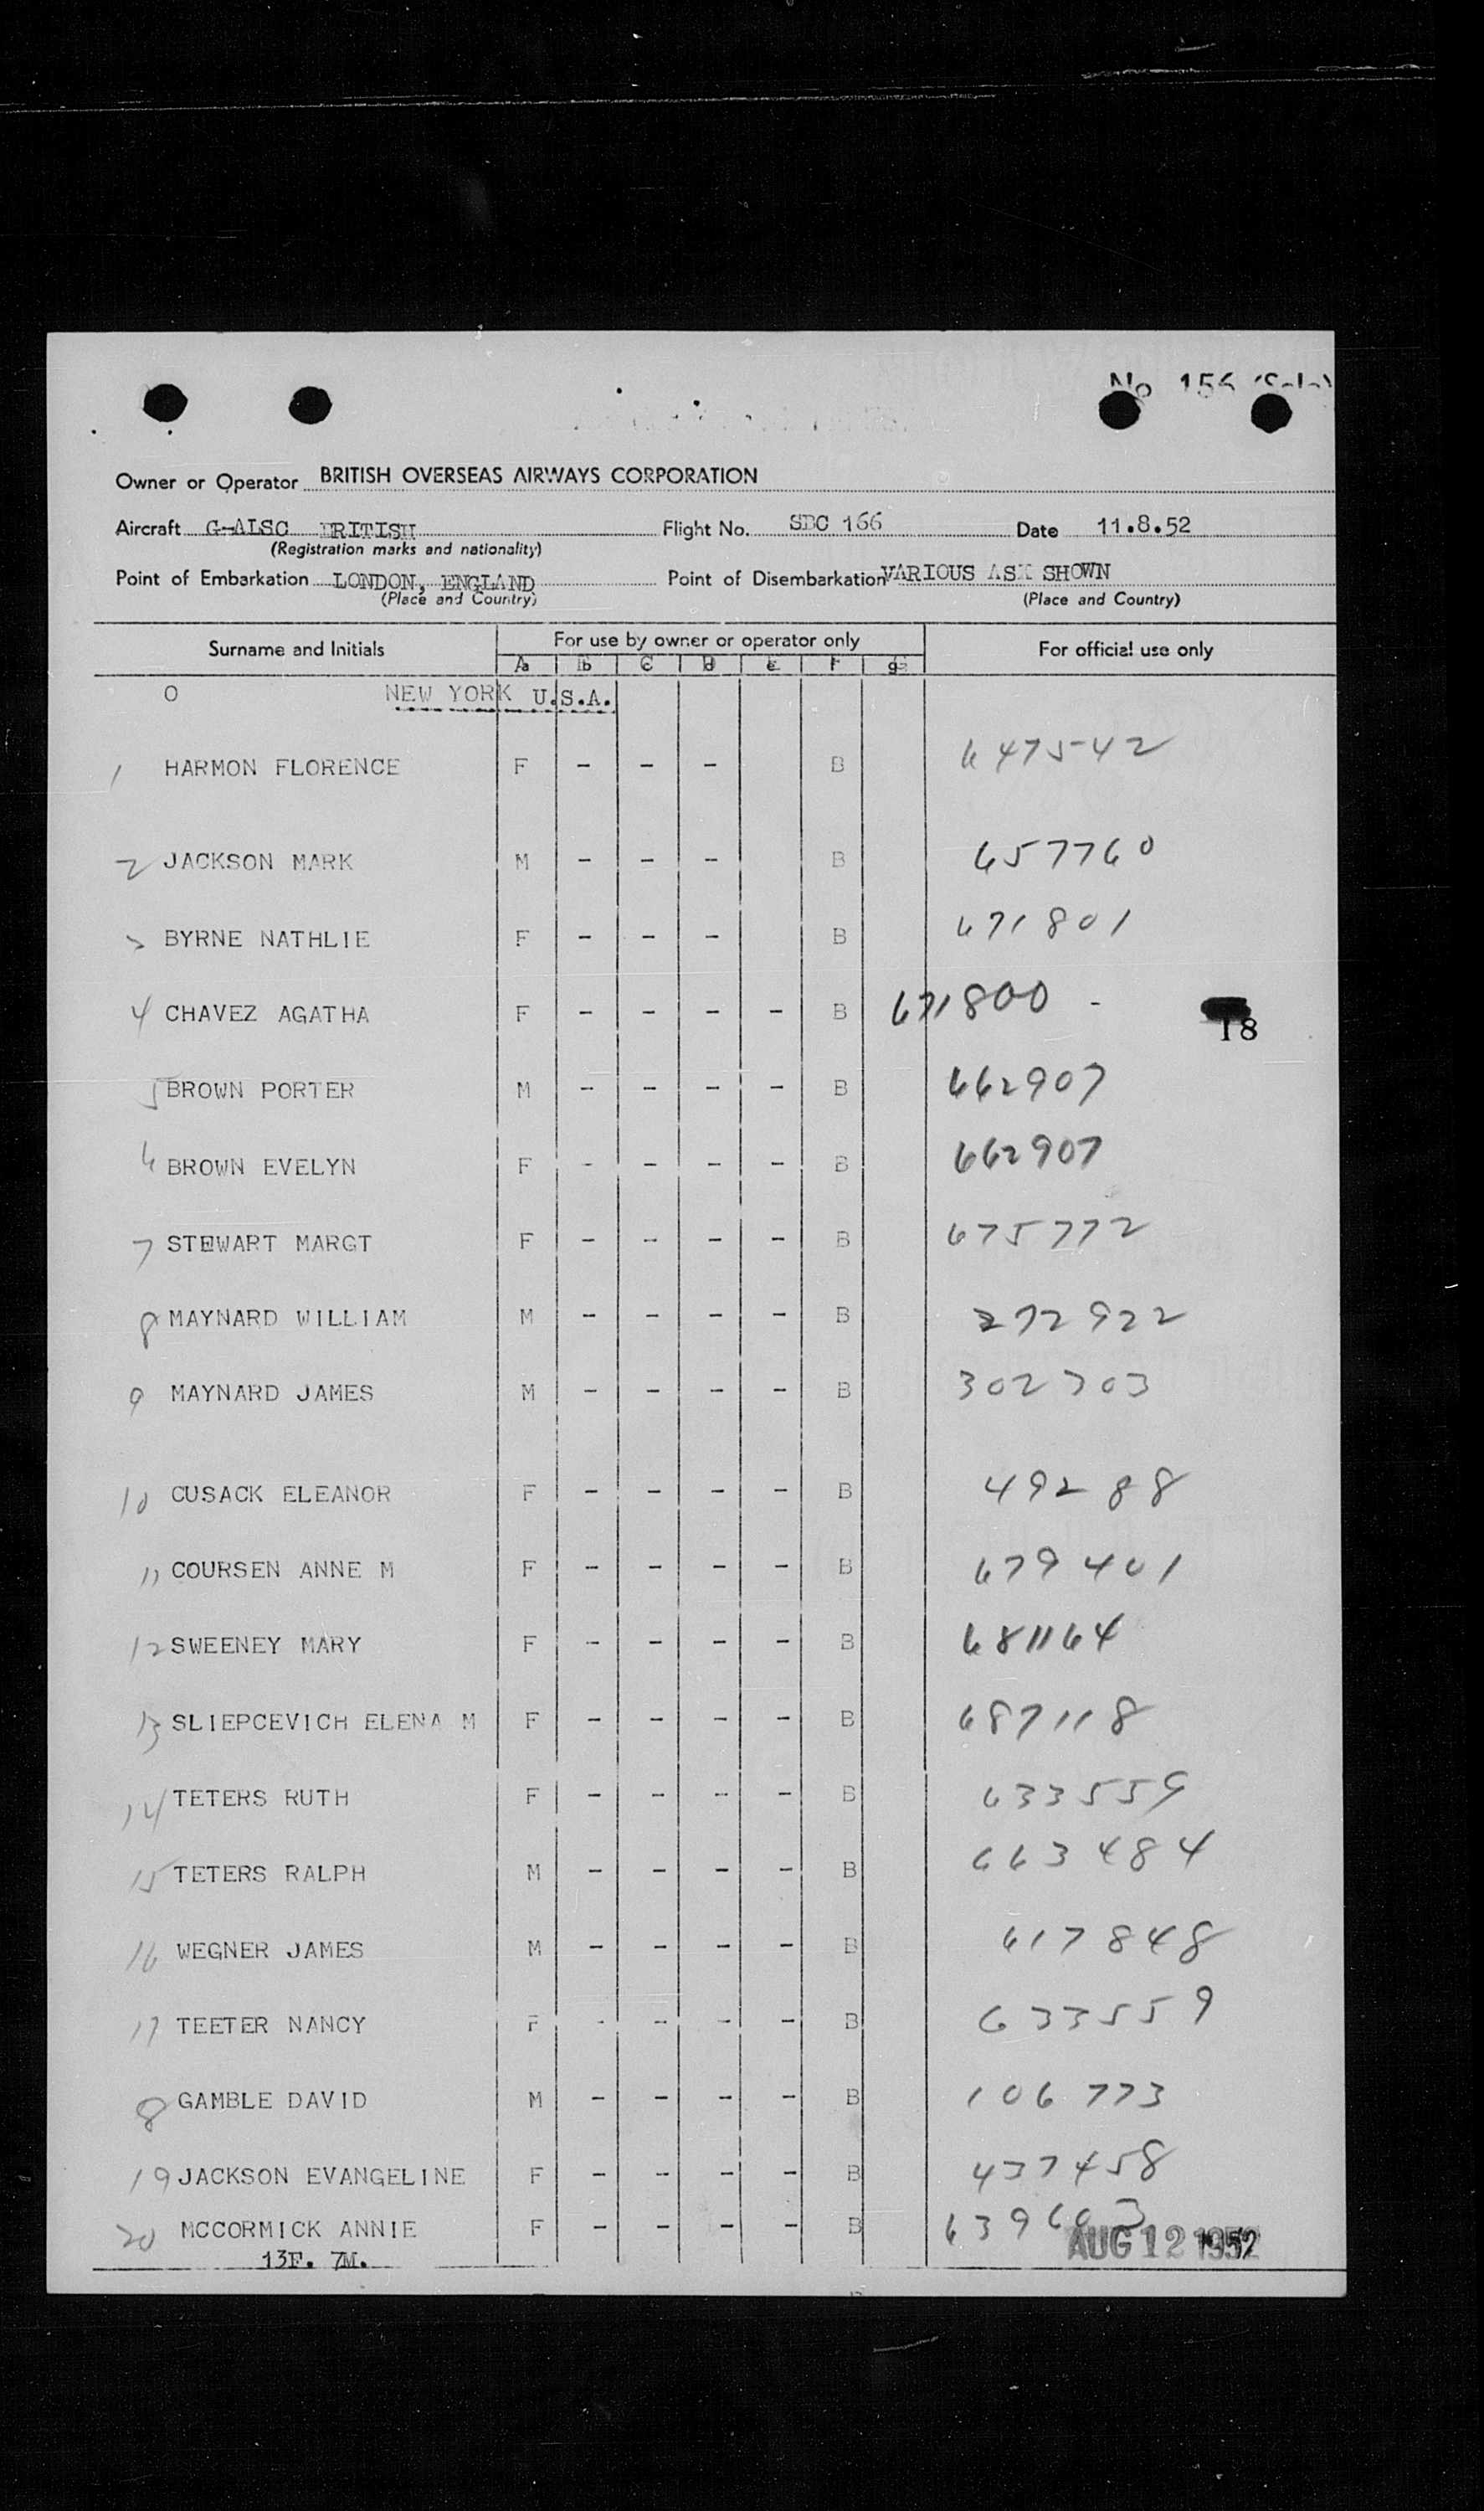 Owner or Operator BRITISH OVERSEAS AIRWAYS CORPORATION
Aircraft G-ALSC BRITISH Flight No. SBC 166 Date 11.8.52
(Registration marks and nationality)
Point of Embarkation LONDON, ENGLAND Point of Disembarkation VARIOUS AS SHOWN
(Place and Country) (Place and Country)
Surname and Initials For use by owner or operator only For official use only
A b C D E F g
O NEW YORK U.S.A.
1 HARMON FLORENCE F - - - B 647542
2 JACKSON MARK M - - - B 657760
3 BYRNE NATHLIE F - - - B 671801
4 CHAVEZ AGATHA F - - - - B 671800 -
18
5 BROWN PORTER M - - - - B 662907
6 BROWN EVELYN F - - - - B 662907
7 STEWART MARGT F - - - - B 675772
8 MAYNARD WILLIAM M - - - - B 272922
9 MAYNARD JAMES M - - - - B 302703
10 CUSACK ELEANOR F - - - - B 49288
11 COURSEN ANNE M F - - - - B 679401
12 SWEENEY MARY F - - - - B 681164
13 SLIEPCEVICH ELENA M F - - - - B 687118
14 TETERS RUTH F - - - - B 633559
15 TETERS RALPH M - - - - B 663484
16 WEGNER JAMES M - - - - B 617848
17 TEETER NANCY F - - - - B 633559
8 GAMBLE DAVID M - - - - B 106773
19 JACKSON EVANGELINE F - - - - B 437458
20 MCCORMICK ANNIE F - - - - B 639603
13F. 7M. AUG 12 1952